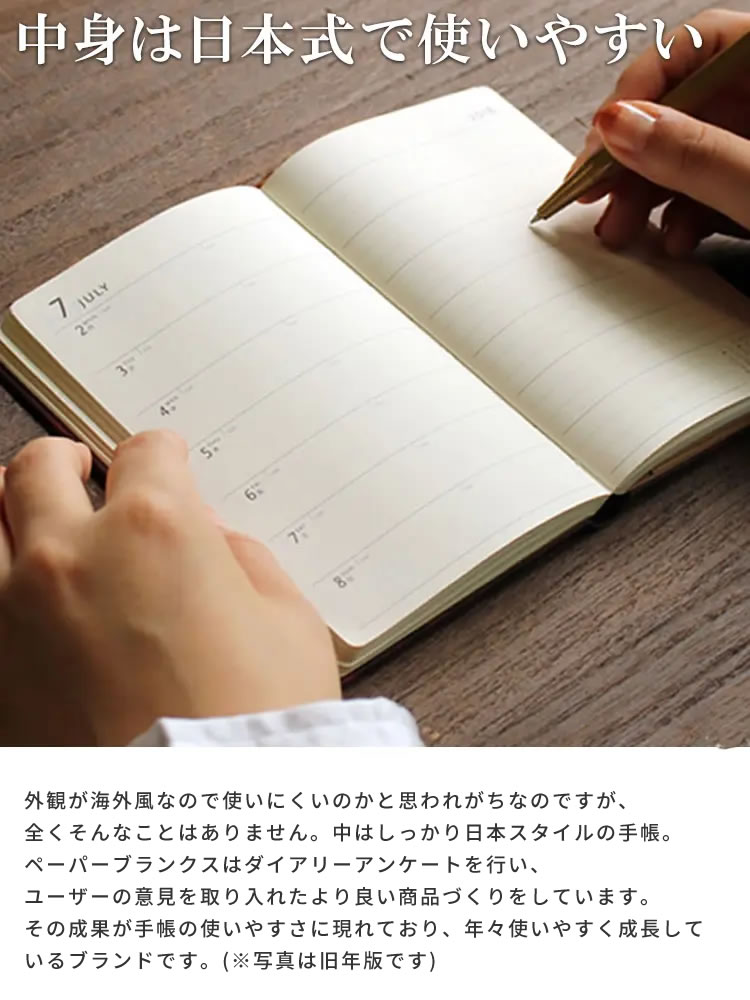 中身は日本式で使いやすい
7 JULY
2
3
4
5
6
7
8
外観が海外風なので使いにくいのかと思われがちなのですが、
全くそんなことはありません。中はしっかり日本スタイルの手帳。
ペーパーブランクスはダイアリーアンケートを行い、
ユーザーの意見を取り入れたより良い商品づくりをしています。
その成果が手帳の使いやすさに現れており、年々使いやすく成長して
いるブランドです。(※写真は旧年版です)